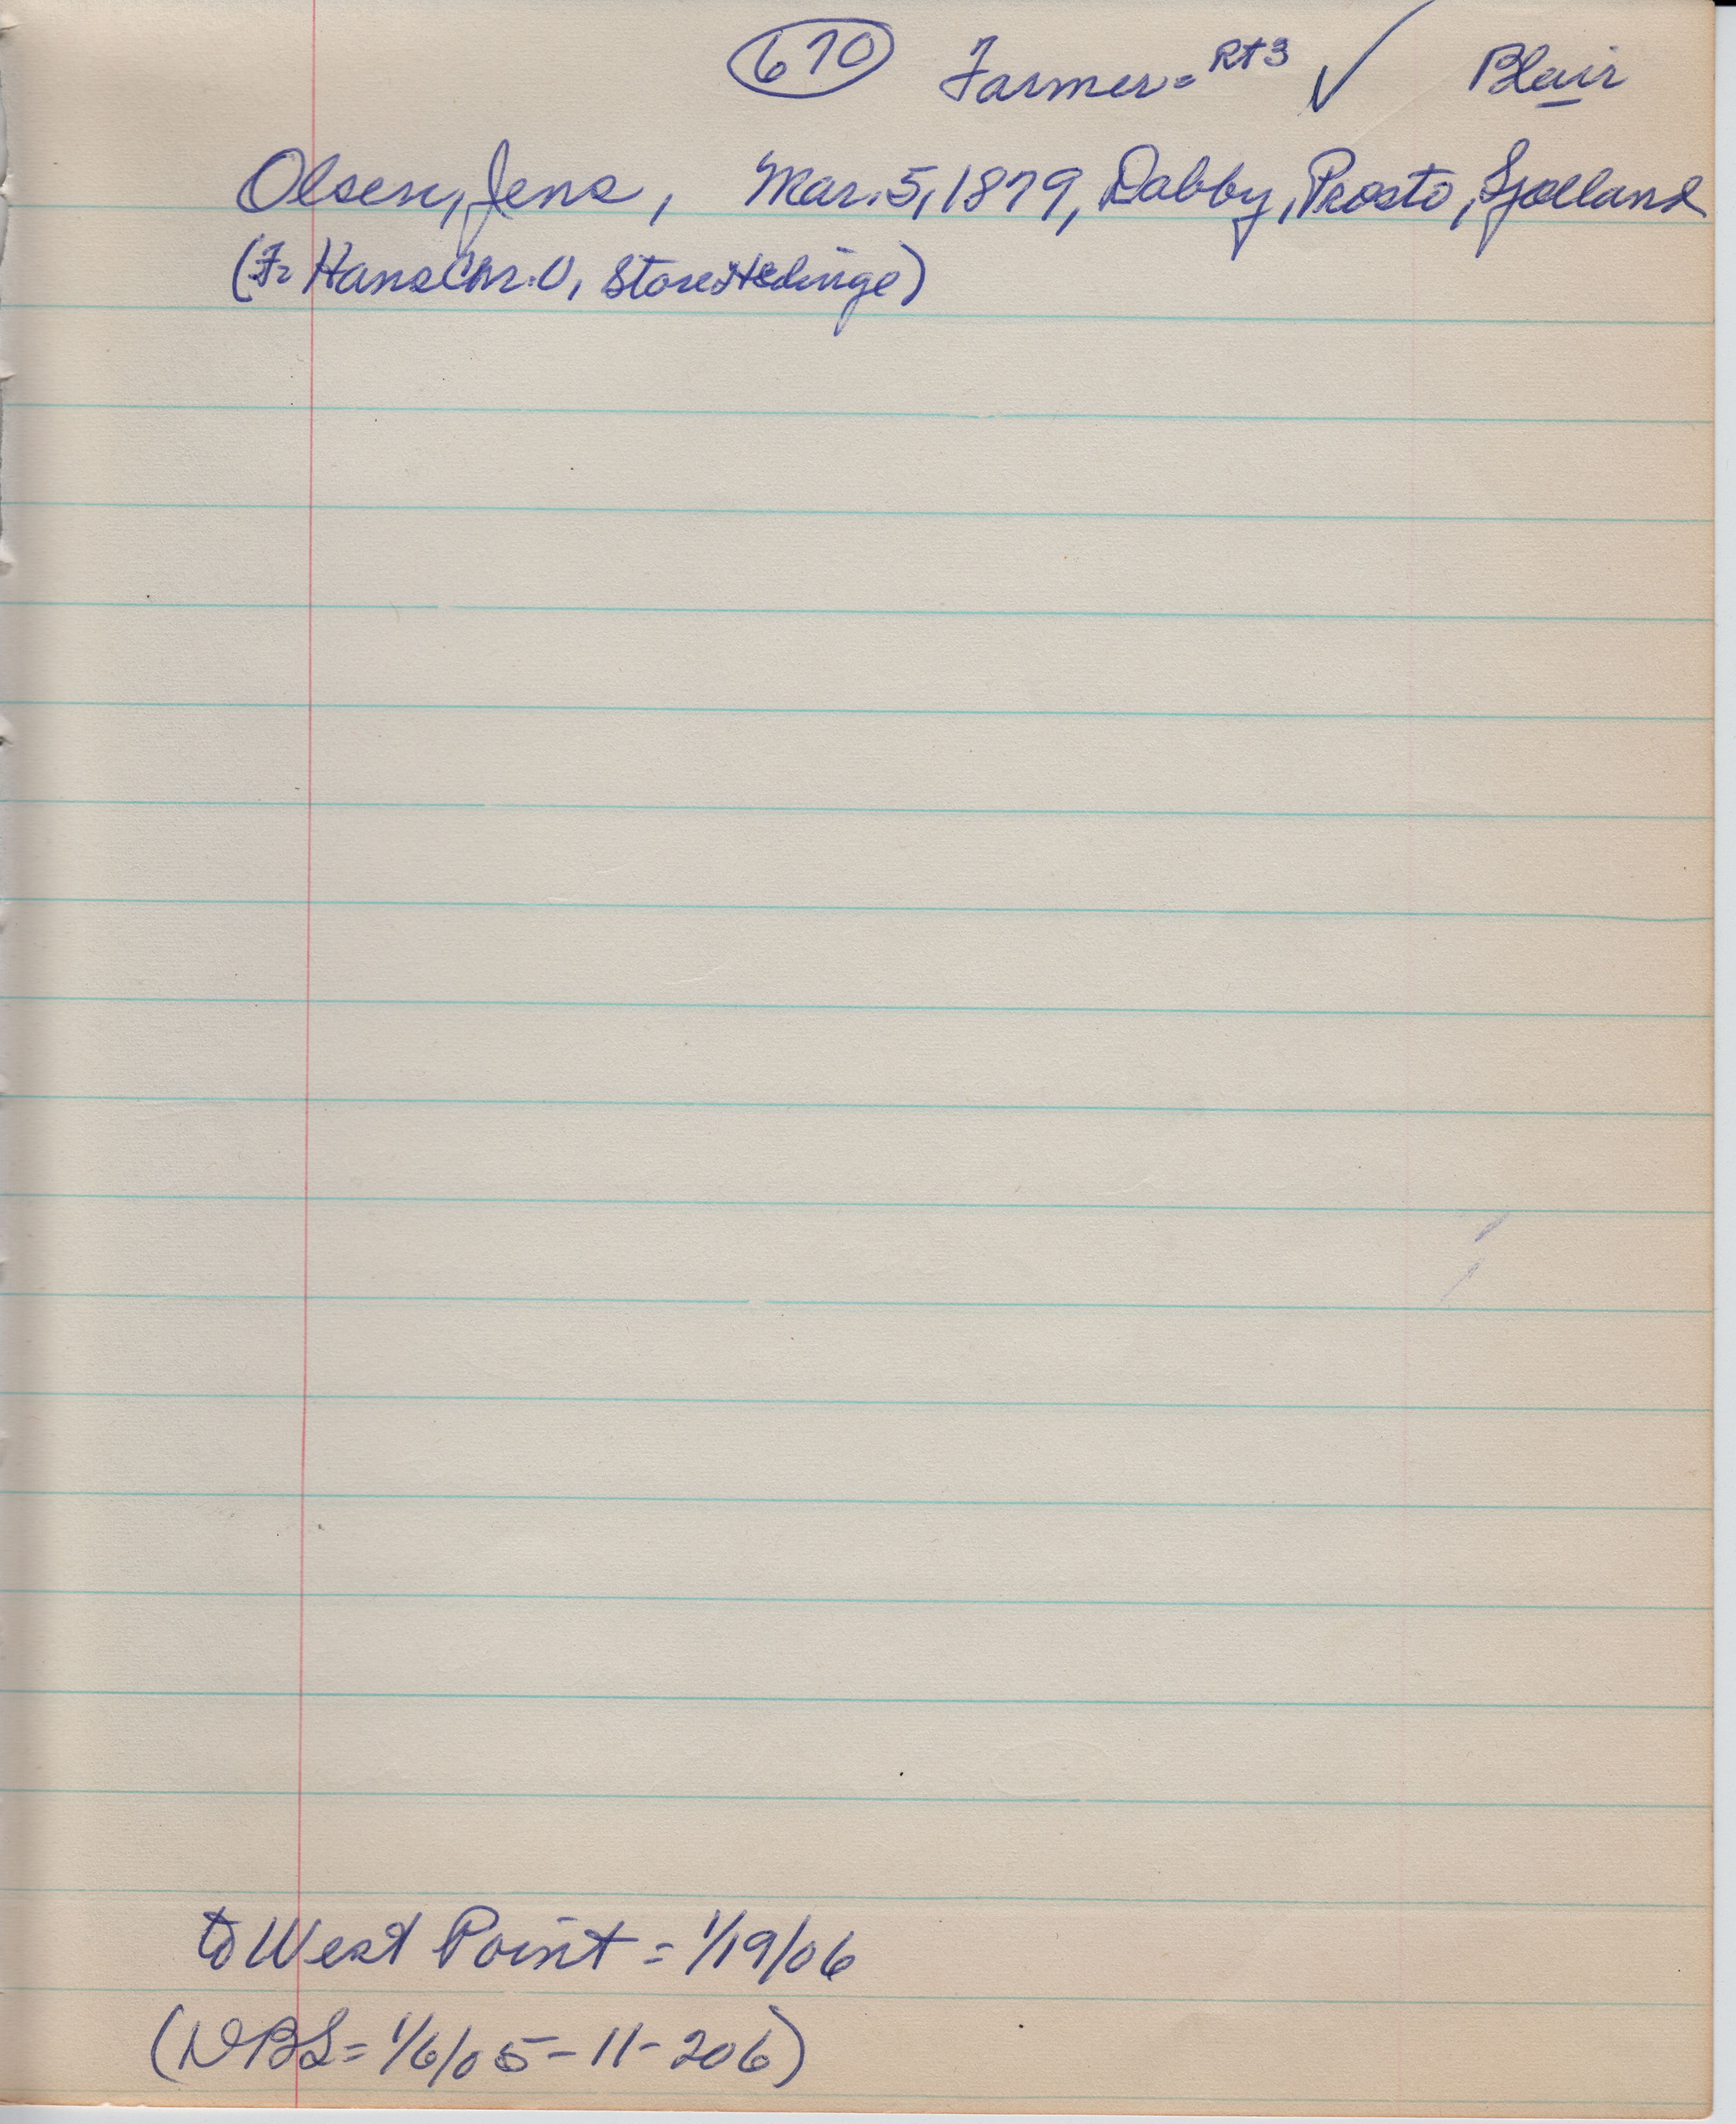 670 Farmer = Rt 3 ✓ Blair
Olsen, Jens, Mar. 5, 1879, Dabby, Prosto, Sjælland
(Fr Hans Chr. O, Store Hedinge)
to West Point = 1/19/06
(DBS = 1/6/05 - 11 - 206)